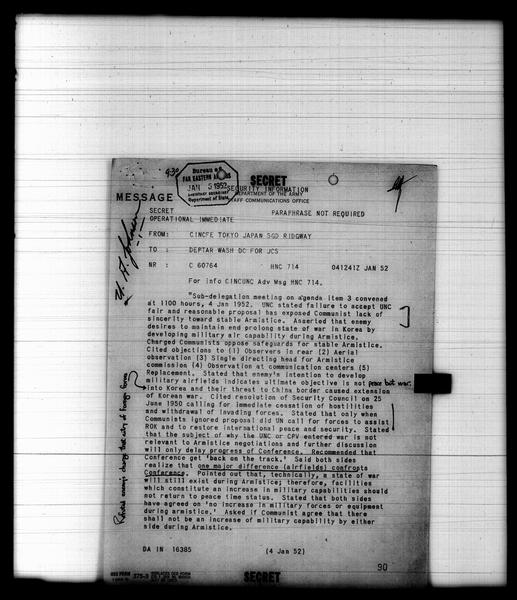 930
Bureau of
FAR EASTERN AFFAIRS
JAN 5 1952
Department of State
SECRET
SECURITY INFORMATION
DEPARTMENT OF THE ARMY
STAFF COMMUNICATIONS OFFICE
MESSAGE
SECRET
OPERATIONAL IMMEDIATE
PARAPHRASE NOT REQUIRED
FROM: CINCFE TOKYO JAPAN SGD RIDGWAY
TO : DEPTAR WASH DC FOR JCS
NR : C 60764 HNC 714 041241Z JAN 52
For info CINCUNC Adv Msg HNC 714.
"Sub-delegation meeting on agenda item 3 convened
at 1100 hours, 4 Jan 1952. UNC stated failure to accept UNC
fair and reasonable proposal has exposed Communist lack of
sincerity toward stable Armistice. Asserted that enemy
desires to maintain end prolong state of war in Korea by
developing military air capability during Armistice.
Charged Communists oppose safeguards for stable Armistice.
Cited objections to (1) Observers in rear (2) Aerial
observation (3) Single directing head for Armistice
Commission (4) Observation at communication centers (5)
Replacement. Stated that enemy's intention to develop
military airfields indicates ultimate objective is not peace but war.
into Korea and their threat to China border caused extension
of Korean war. Cited resolution of Security Council on 25
June 1950 calling for immediate cessation of hostilities
and withdrawal of invading forces. Stated that only when
Communists ignored proposal did UN call for forces to assist
ROK and to restore international peace and security. Stated
that the subject of why the UNC or CPV entered war is not
relevant to Armistice negotiations and further discussion
will only delay progress of Conference. Recommended that
Conference get 'back on the track.' Said both sides
realize that one major difference (airfields) confronts
Conference. Pointed out that, technically, a state of war
will still exist during Armistice; therefore, facilities
which constitute an increase in military capabilities should
not return to peace time status. Stated that both sides
have agreed on 'no increase in military forces or equipment
during armistice.' Asked if Communist agree that there
shall not be an increase of military capability by either
side during Armistice.
DA IN 16385 (4 Jan 52)
90
375-3
SECRET